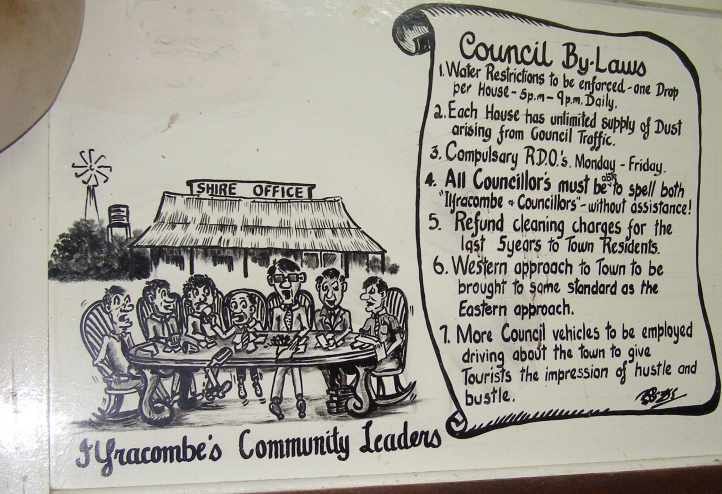 Council By-Laws
1. Water Restrictions to be enforced - one Drop
per House - 5p.m - 9p.m. Daily.
2. Each House has unlimited supply of Dust
arising from Council Traffic.
3. Compulsary R.D.O.'s. Monday - Friday.
4. All Councillor's must be able to spell both
"Ilfracombe & Councillors" - without assistance!
5. Refund cleaning charges for the
last 5years to Town Residents.
6. Western approach to Town to be
brought to same standard as the
Eastern approach.
7. More Council vehicles to be employed
driving about the town to give
Tourists the impression of hustle and
bustle.
SHIRE OFFICE
Ilfracombe's Community Leaders